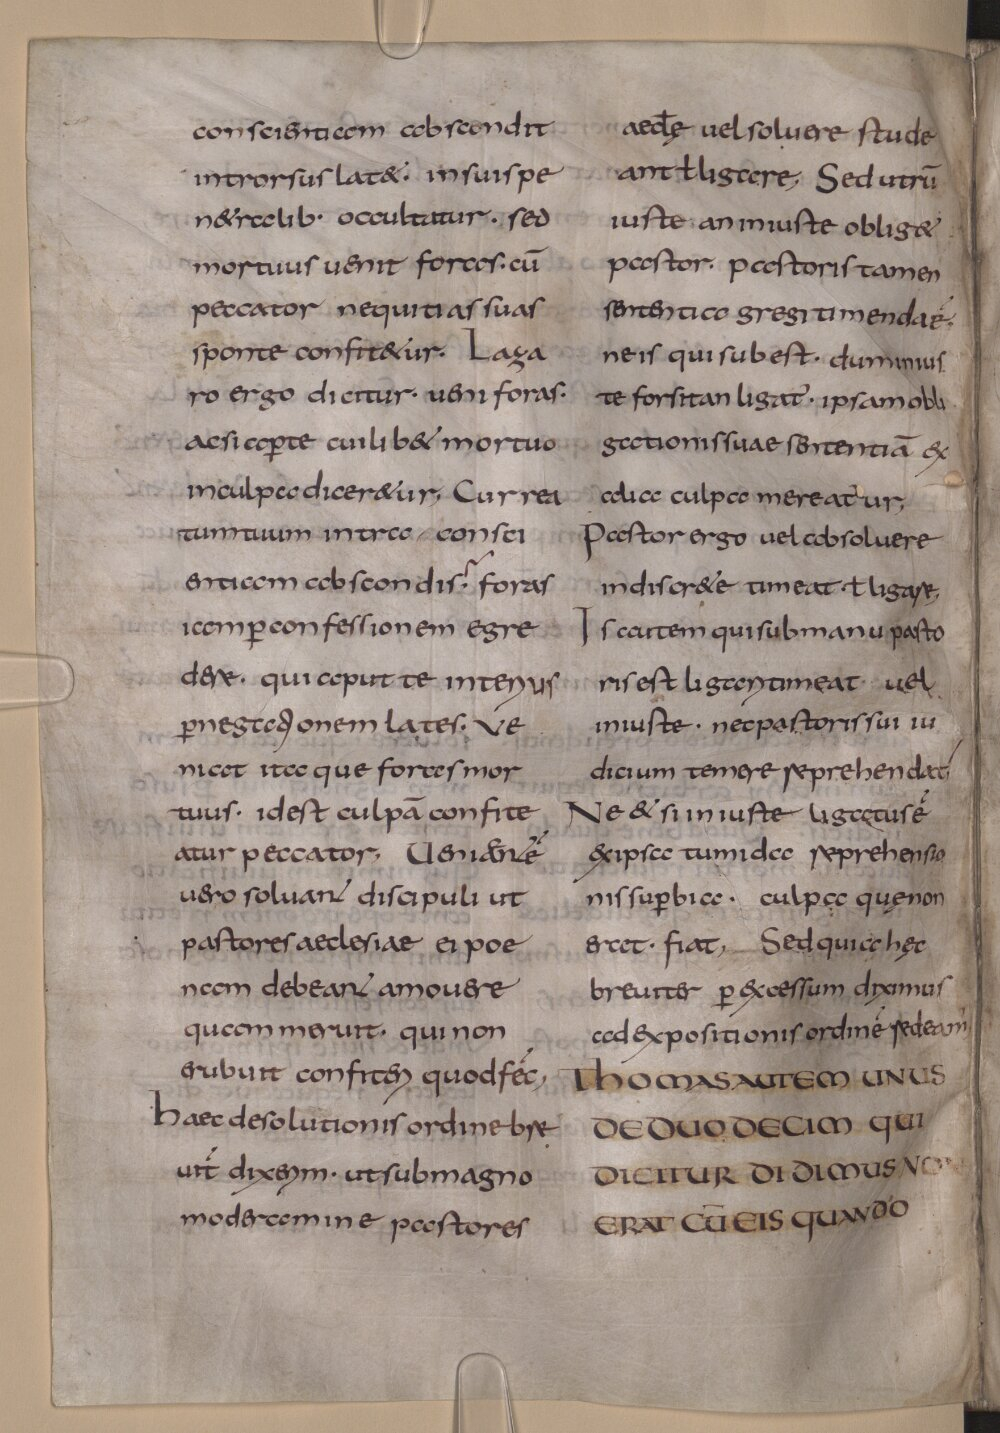 conscientiam abscondit
introrsus lat&. in suis pe
n&ralib· occultatur. sed
mortuus uenit foras. cū
peccator nequitias suas
sponte confit&ur. Laza
ro ergo dicitur. ueni foras.
ac si aꝑte cuilib& mortuo
in culpa dicer&ur, Cur rea
tum tuum intra consci
entiam abscondis? foras
iam ꝑ confessionem egre
dere. qui aput te interius
ꝑ negationem lates. Ve
niat itaque foras mor
tuus. id est culpā confite
atur peccator,
uero soluant discipuli ut
pastores aeclesiae ei poe
nam debeant amouere
quam meruit. qui non
erubuit confiteri quod fec̄,
haec de solutionis ordine bre
uit̄ dixerim. ut sub magno
moderamine pastores
aeclę uel soluere stude
ant ł ligare, Sed utrū
iuste an iniuste oblig&
pastor. pastoris tamen
sententia gregi timenda ē,
ne is qui subest. dum inius
te forsitan ligat̄. ipsam obli
gationis suae sententiā ex
alia culpa mereatur,
Pastor ergo uel absoluere
indiscr&e timeat. ł ligare,
Is autem qui sub manu pasto
ris est ligari timeat uel
iniuste. nec pastoris sui iu
dicium temere reprehendat,
Ne & si iniuste ligatus ē
ex ipsa tumida reprehensio
nis suꝑbia. culpa quę non
erat. fiat, Sed quia hęc
breuiter ꝑ excessum diximus
ad expositionis ordinē redeam̄
THOMAS AUTEM UNUS
DE DUODECIM QUI
DICITUR DIDIMUS NON
ERAT CŪ EIS QUANDO